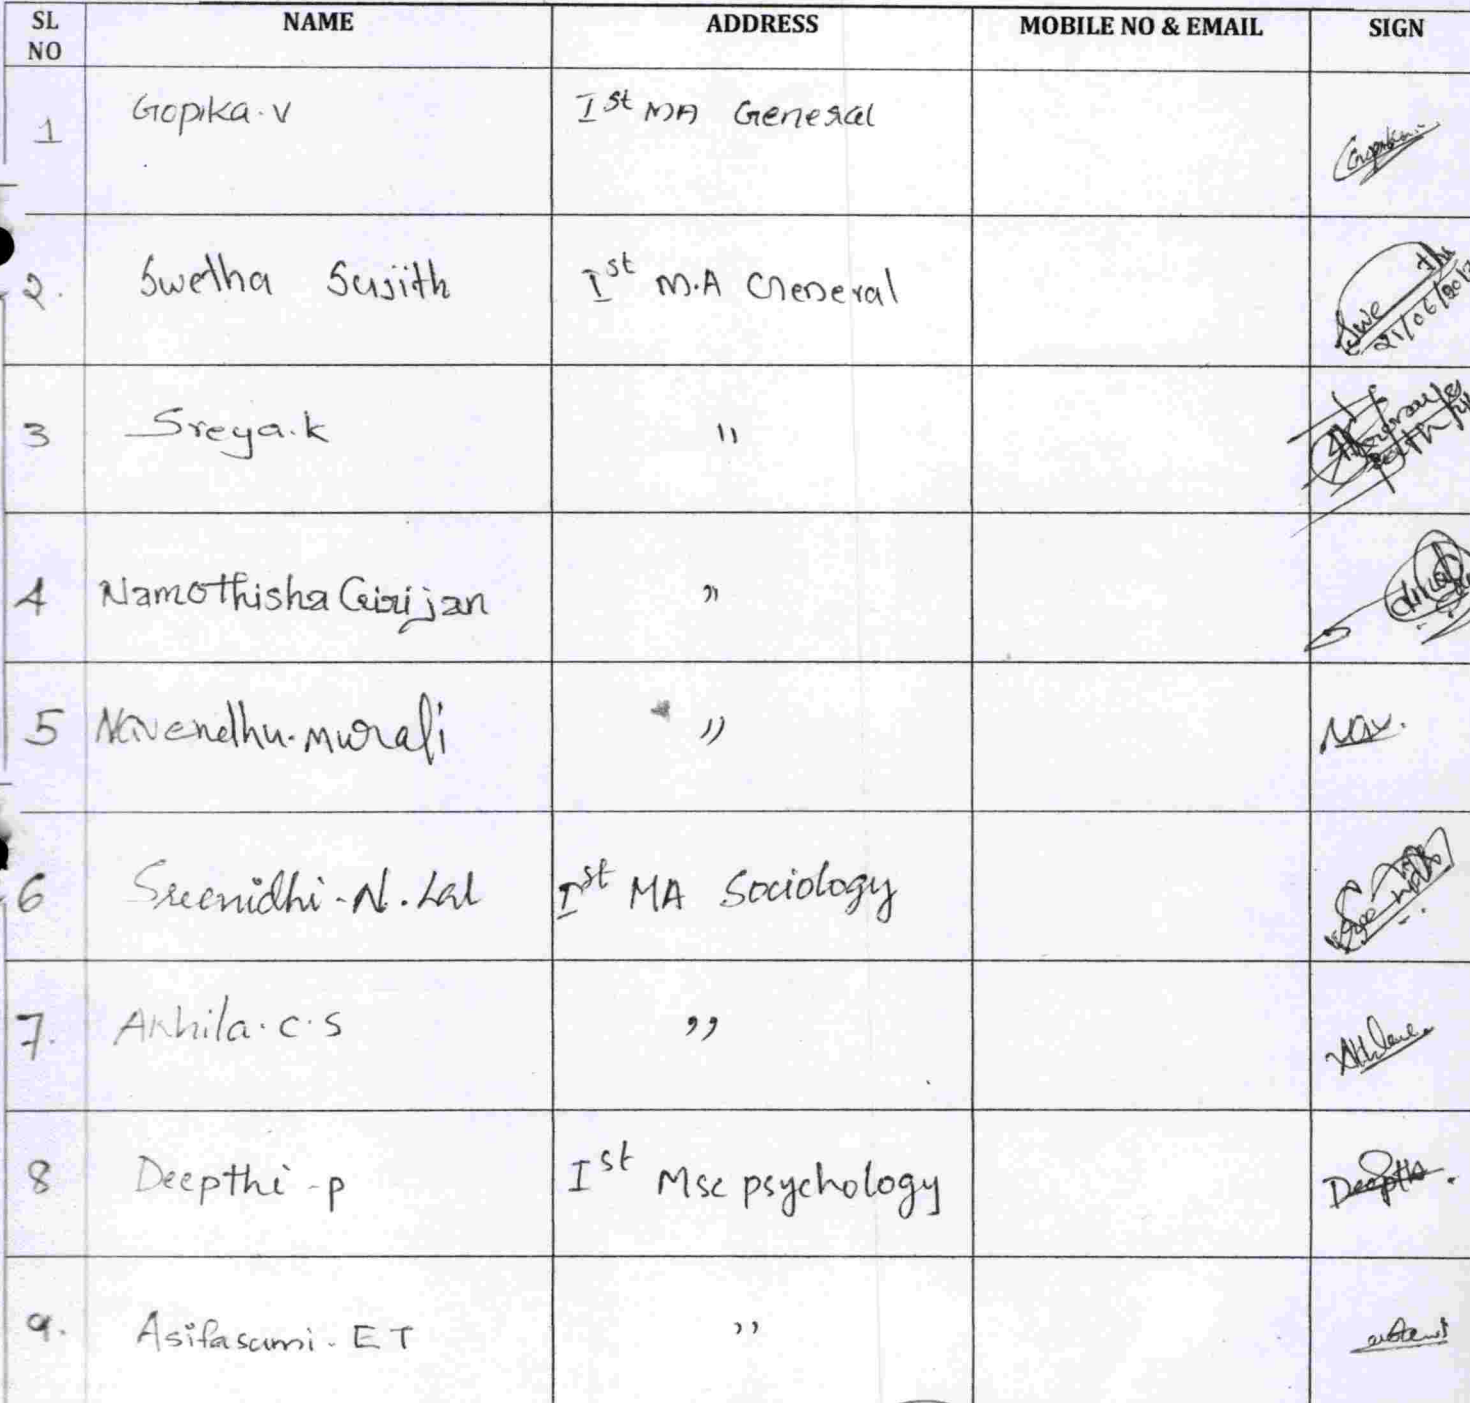 SL NO NAME ADDRESS MOBILE NO & EMAIL SIGN
1 Gopika.V Ist MA General
2. Swetha Sujith Ist M.A General
3 Sreya.k "
4 Namothisha Girijan "
5 Navendhu.murali " Nav.
6 Sreenidhi.N.Lal Ist MA Sociology
7. Akhila.C.S "
8 Deepthi-p Ist Msc psychology Deepthi
9. Asifasumi.ET "